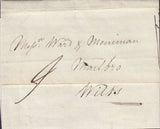 Messrs Ward & Merriman
Marlbro
Wilts
9